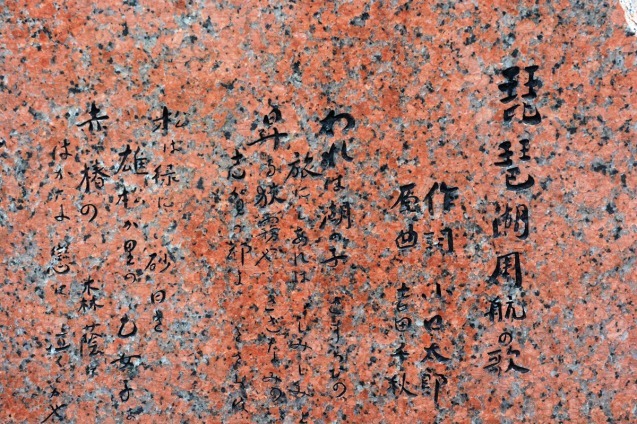 琵琶湖周航の歌
作詞 小口太郎
原曲 吉田千秋
われは湖の子 さすらひの
旅にしあれば しみじみと
昇る狭霧や さざなみの
志賀の都よ いざさらば
松は緑に 砂白き
雄松が里の 乙女子は
赤椿の 森蔭に
はかない 恋に 泣くとかや